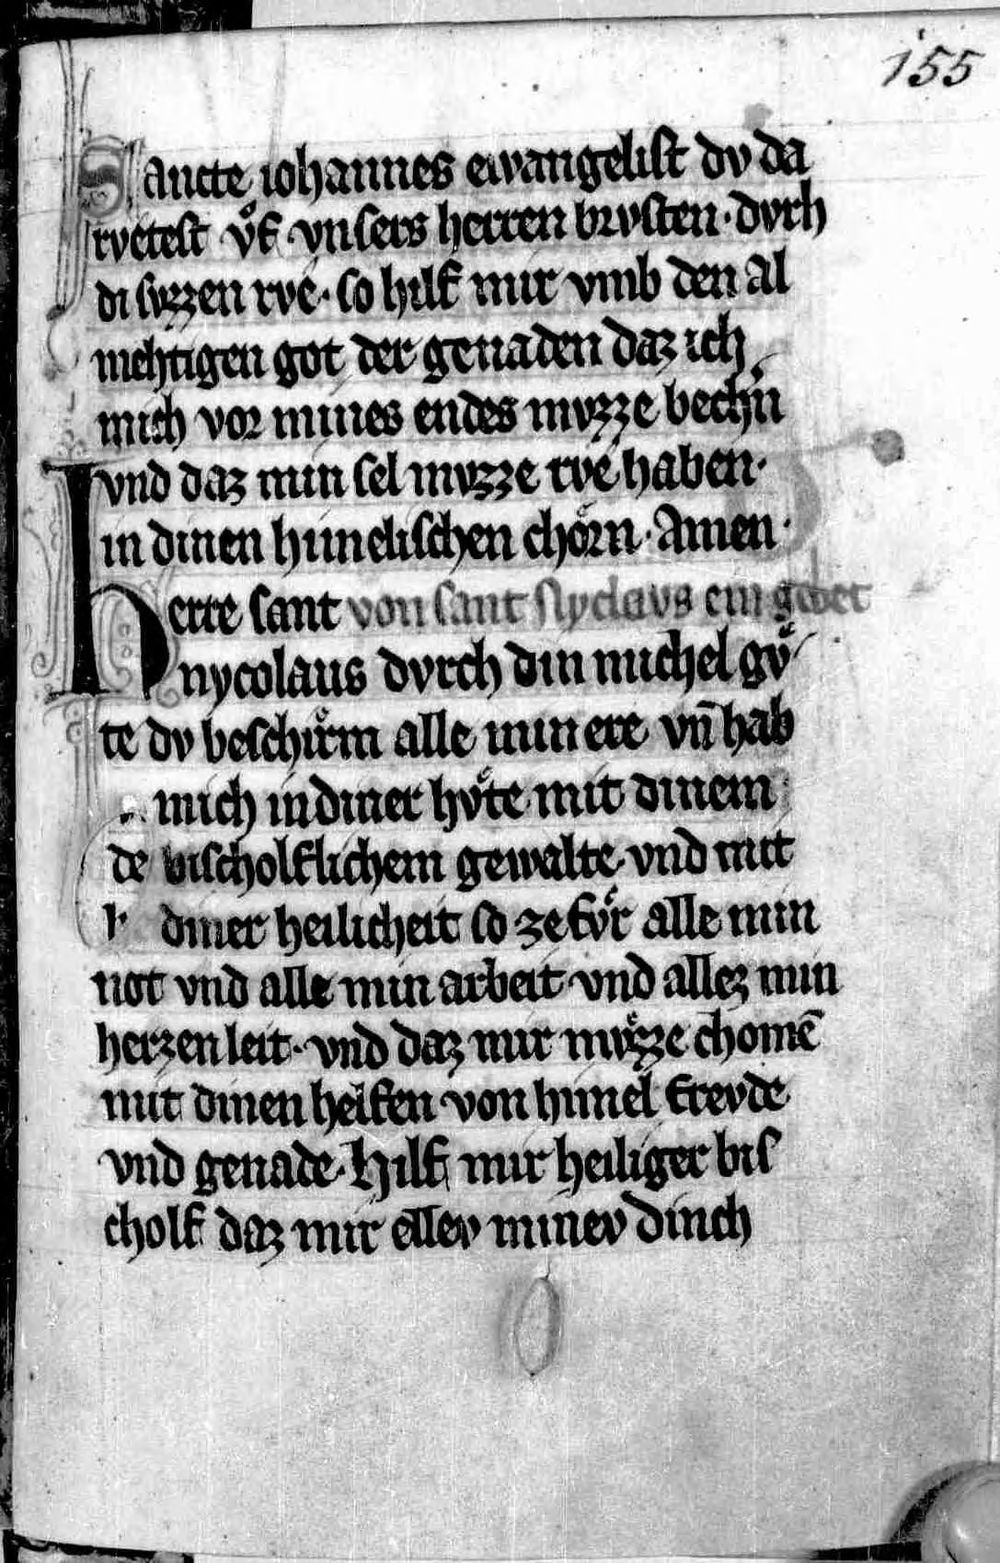 155
Sancte iohannes ewangelist dv da
rvetest vͦf vnsers herren brvsten · dvrh
di svzzen rve · so hilf mir vmb den al
mehtigen got der genaden daz ich
mich vor mines endes mvzze bechr̄n
vnd daz min sel mvzze rve haben ·
in dinen himelischen choͤrn · Amen ·
Herre sant von sant Nyclavs ein gebet
nycolaus dvrch din michel gvͤ
te dv beschirm alle min ere vn̄ hab
mich in diner hvͤte mit dinem
de bischolflichem gewalte vnd mit
diner heilicheit so zefvͤr alle min
not vnd alle min arbeit vnd allez min
herzenleit · vnd daz mir mvͤzze chomē
mit dinen helfen von himel frevde
vnd genade · Hilf mir heiliger bis
cholf daz mir ellev minev dinch